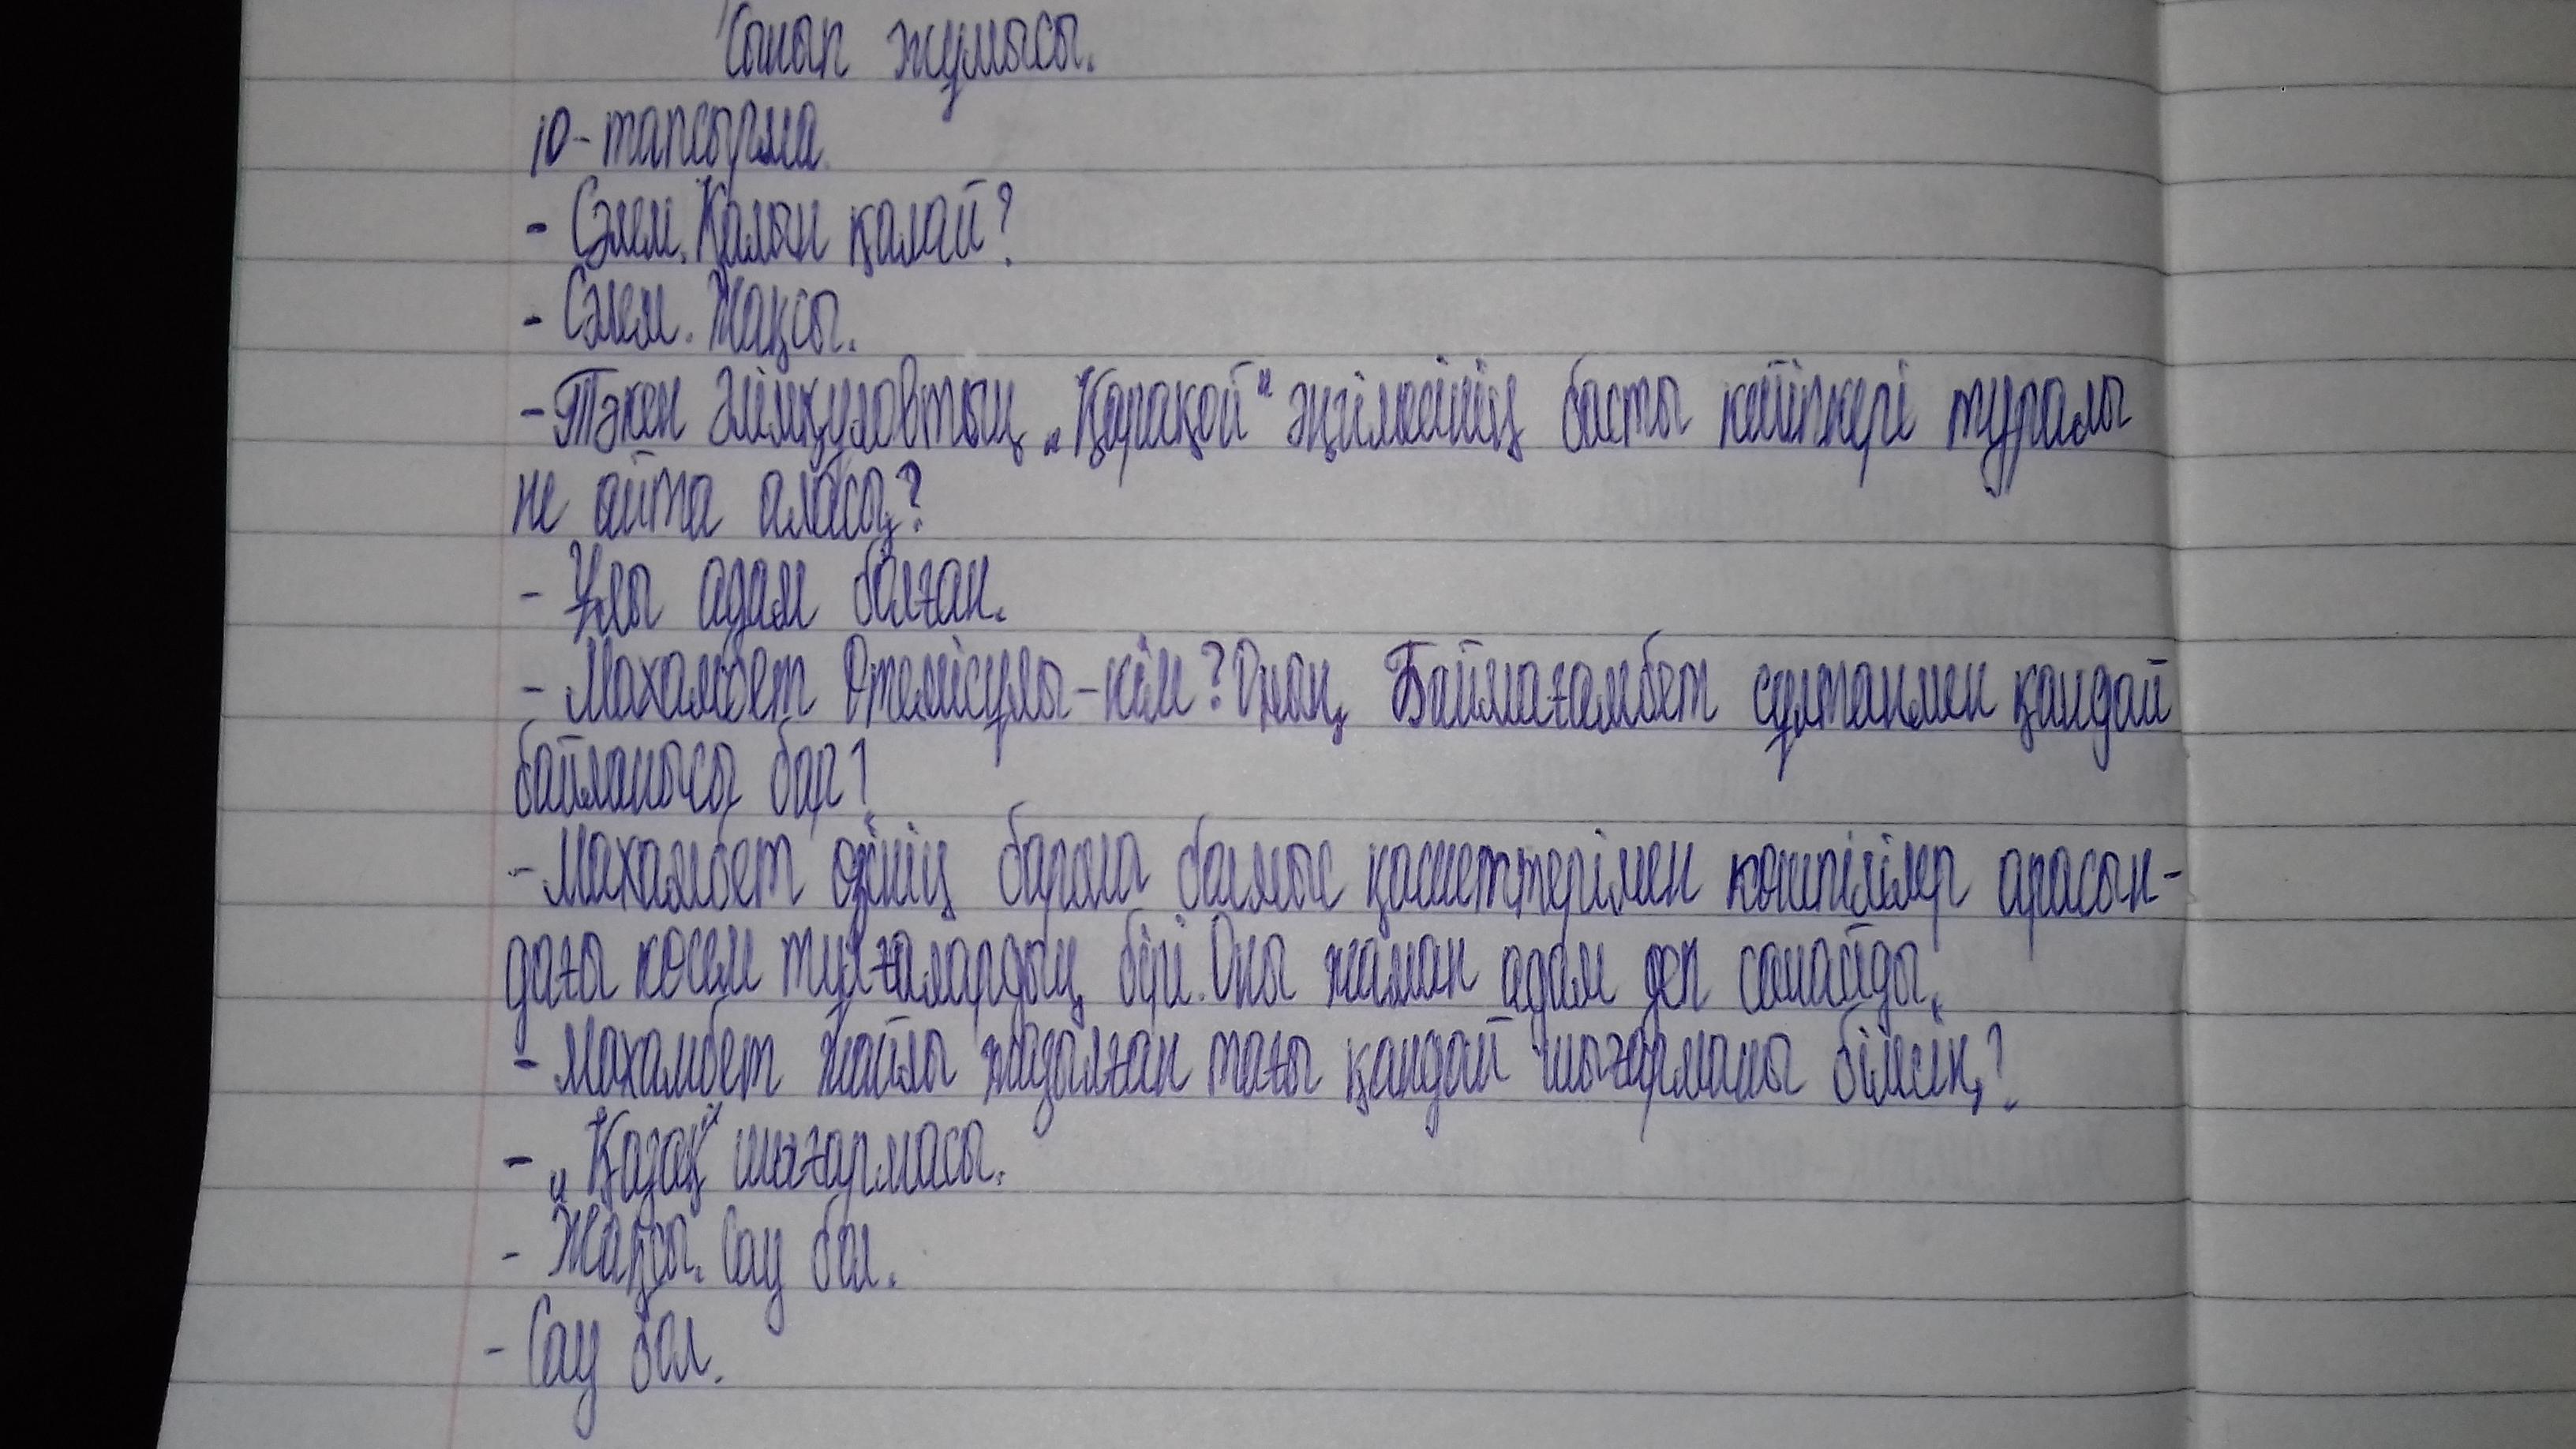 Сынып жұмысы.
10-тапсырма.
- Сәлем. Қалың қалай?
- Сәлем. Жақсы.
- Тәкен Әлімқұловтың „Қарақой“ әңгімесінің басты кейіпкері туралы
не айта аласың?
- Ұлы адам болған.
- Махамбет Өтемісұлы - кім? Оның Баймағамбет сұлтанмен қандай
байланысы бар?
- Махамбет өзінің барша болмыс қасиеттерімен көшпілілер арасын-
дағы көсем тұлғалардың бірі. Оны жаман адам деп санайды.
- Махамбет жайлы жазылған тағы қандай шығарманы білесің?
- „Қазақ“ шығармасы.
- Жақсы. Сау бол.
- Сау бол.